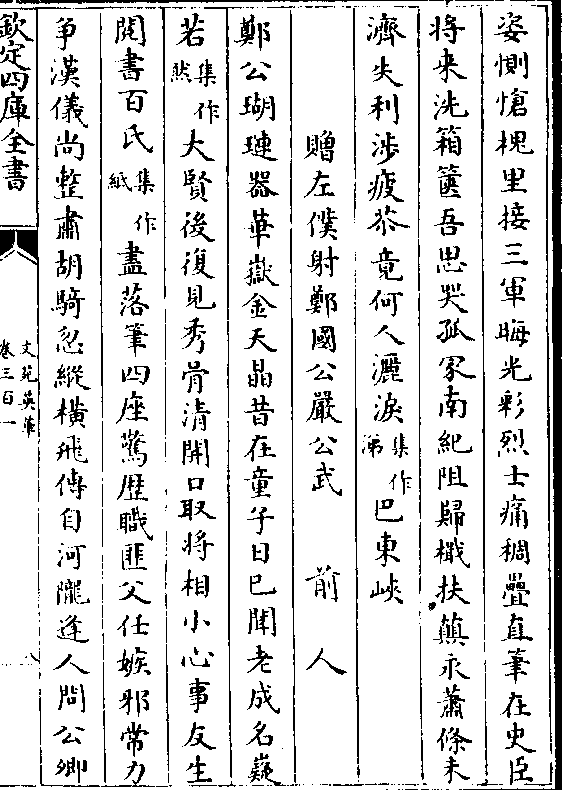 姿惻愴槐里接三軍晦光彩烈士痛稠疊直筆在史臣
將来洗箱篋吾思哭孤冢南紀阻歸檝扶顛永蕭條未
濟失利渉疲苶竟何人灑淚集作涕巴東峽
贈左僕射鄭國公嚴公武 前人
鄭公瑚璉器華嶽金天晶昔在童子日已聞老成名嶷
若集作然大賢後復見秀骨清開口取將相小心事友生
閲書百氏集作紙盡落筆四座驚歴職匪父任嫉邪常力
争漢儀尚整肅胡騎忽縱橫飛傳自河隴逢人問公卿
欽定四庫全書
文苑英華
卷三百一
八